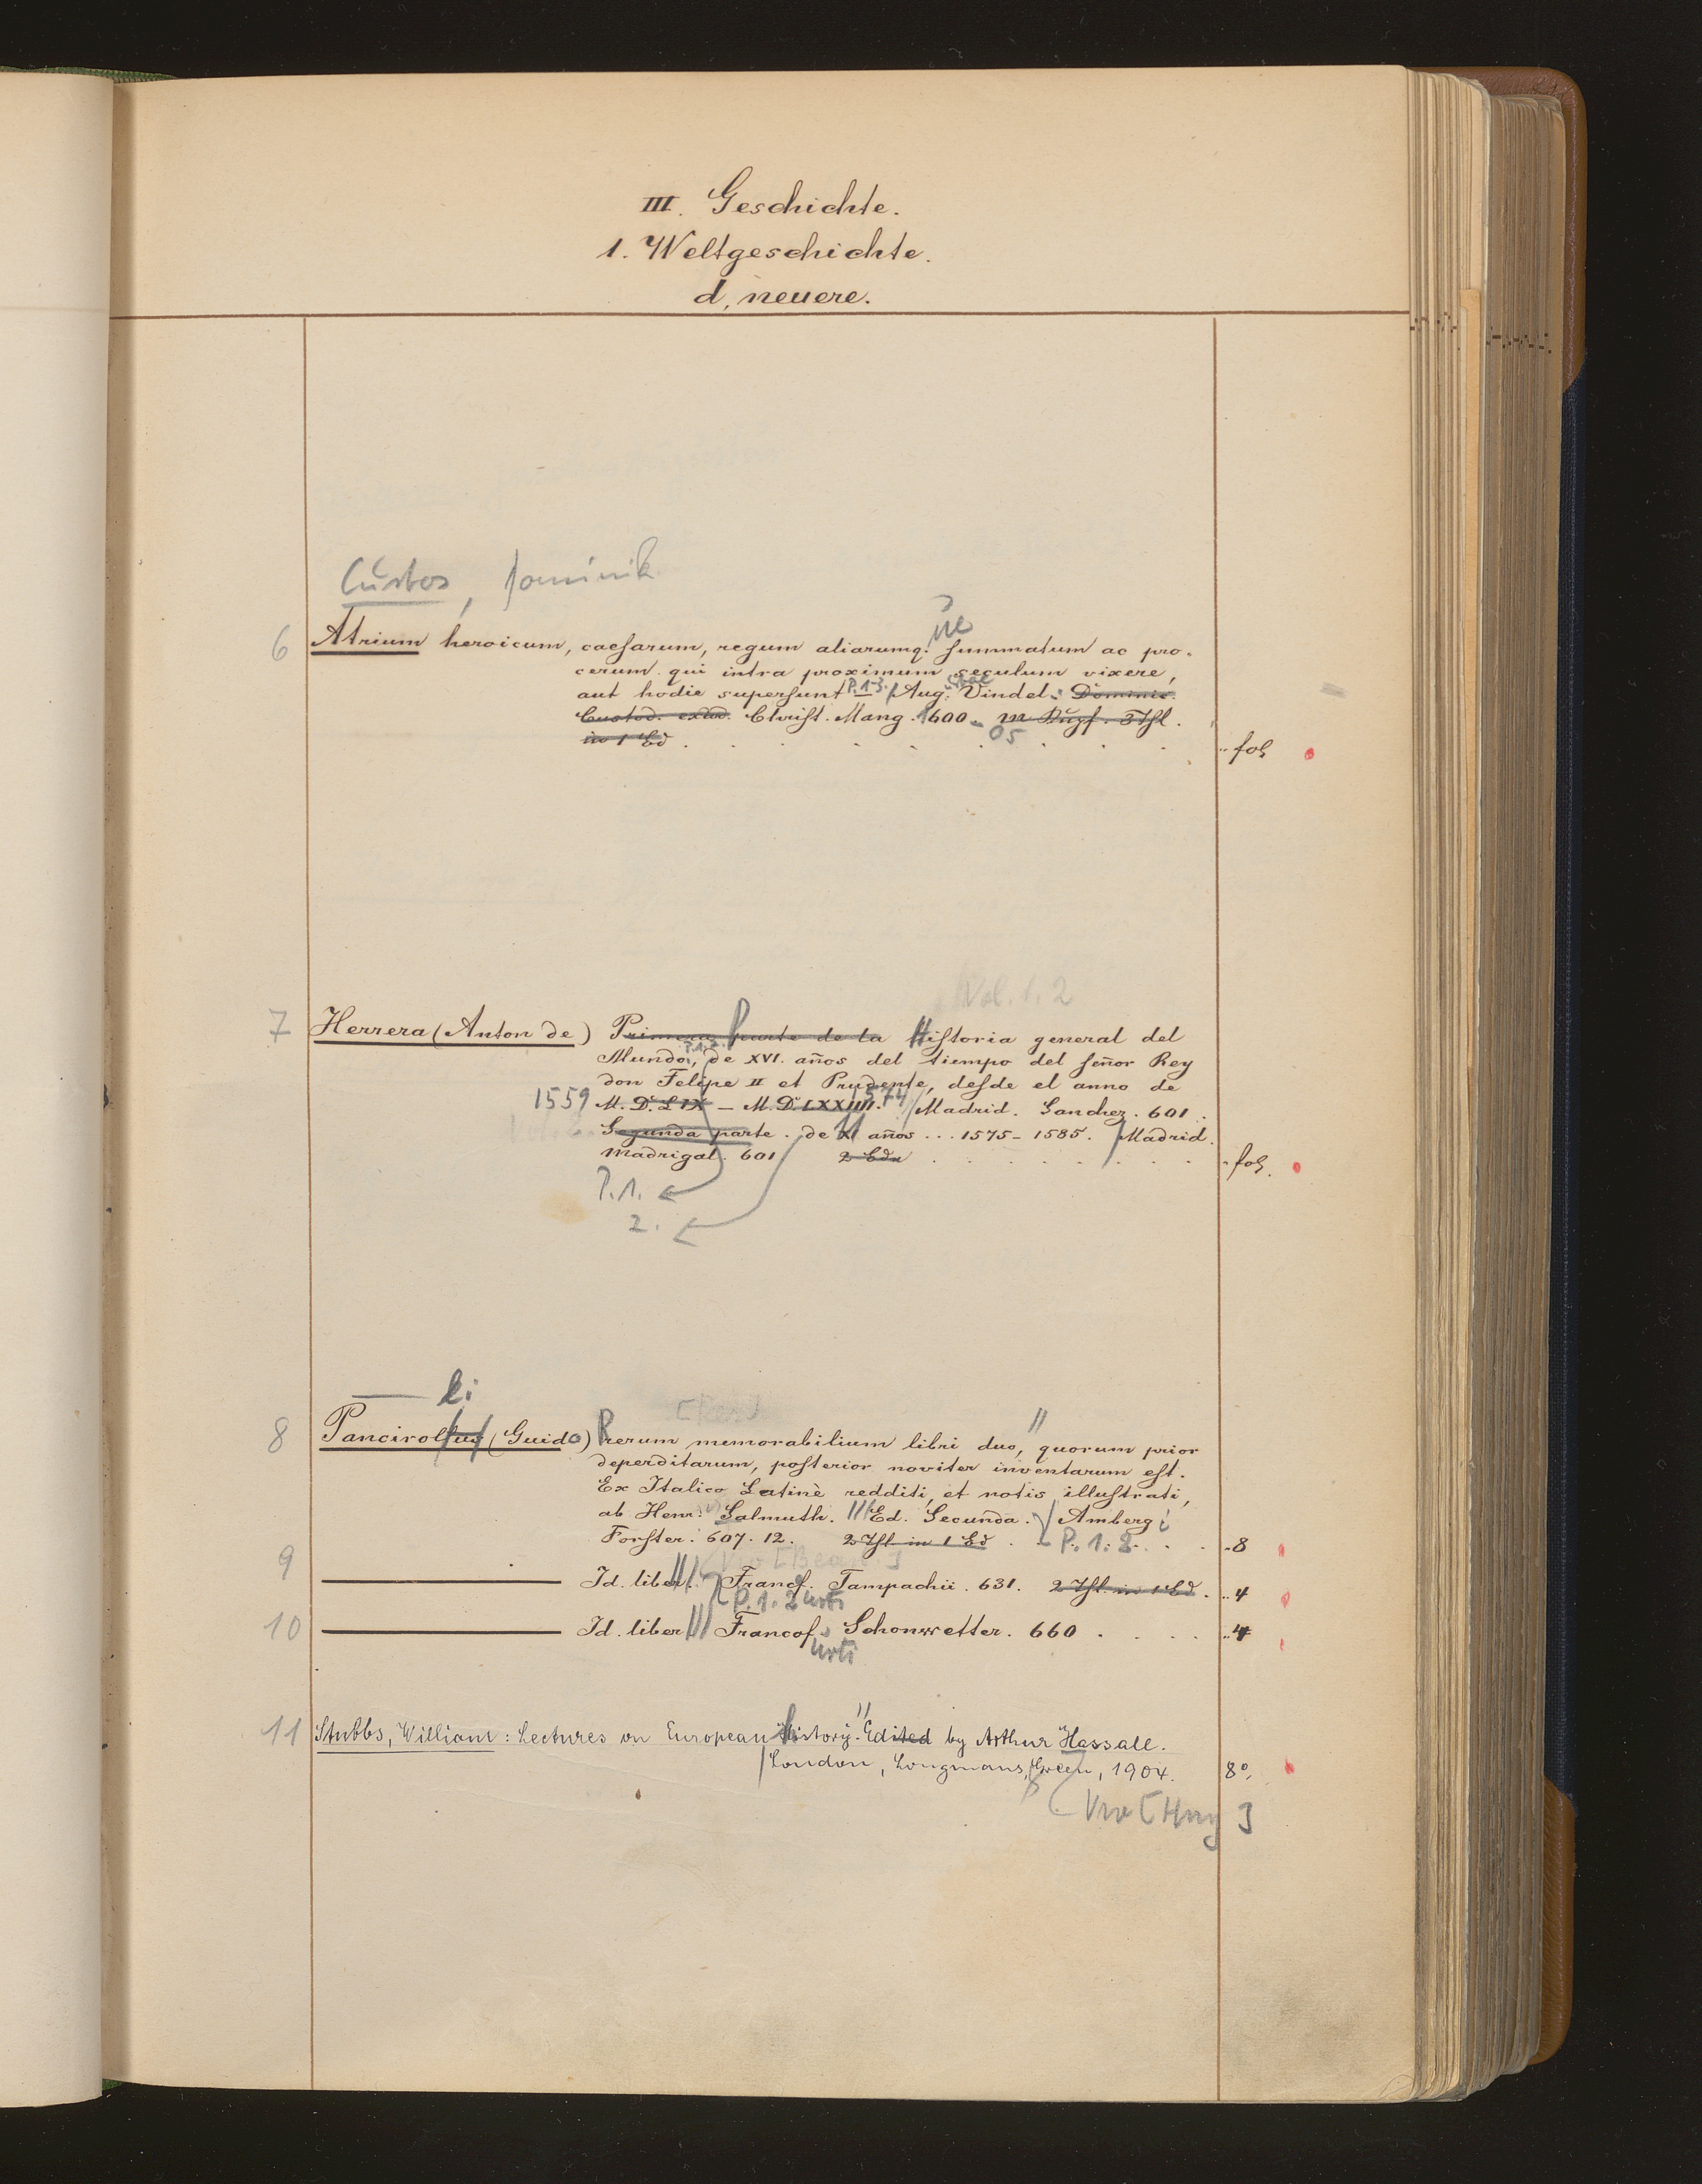 III. Geschichte.
1. Weltgeschichte.
d, neuere.
Custos, Dominik
6 Atrium heroicum, caesarum, regum aliarumq. ue summatum ac pro-
cerum qui intra proximum seculum vixere,
aut hodie supersunt P. 1-3. Aug. Vindel. Dominic.
Custod. Christ. Mang. 1600-05 3 Thl.
in 1 Bd fol
Vol. 1. 2
7 Herrera (Anton de) Primera parte de la Historia general del
Mundo, de XVI. años del tiempo del señor Rey
don Felipe II et Prudente, desde el anno de
1559 M. D. LIX – M. D. LXXIIII. 1574 Madrid. Sanchez. 601.
Vol. 2. Segunda parte. de XI años ... 1575-1585. Madrid.
Madrigal. 601 2 Bde fol.
P. 1.
2.
li
8 Pancirollus (Guido) Rerum memorabilium libri duo, quorum prior
deperditarum, posterior noviter inventarum est.
Ex Italico Latinè redditi, et notis illustrati,
ab Henr. Salmuth. Ed. Secunda. Amberg
Forster. 607. 12. 2 Thl. in 1 Bd P. 1. 2. 8
9 Id. liber Francf. Tampachii. 631. 2 Thl. in 1 Bd. 4
P. 1. 2 urti
10 Id. liber Francof. Schonwetter. 660 4
urti
11 Stubbs, William: Lectures on European history. Edited by Arthur Hassall.
London, Longmans, Green, 1904. 8°.